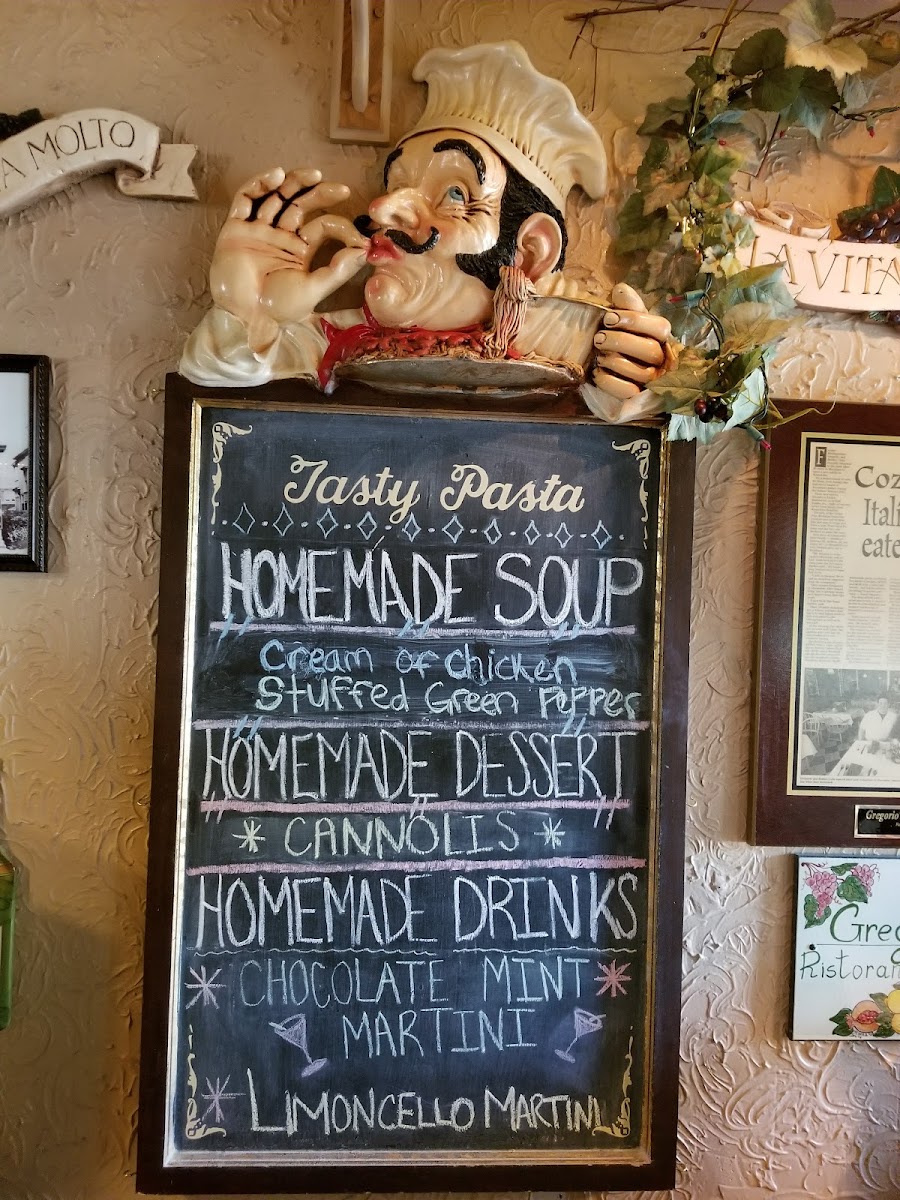 A MOLTO
LA VITA
Tasty Pasta
HOMEMADE SOUP
Cream of chicken
Stuffed Green Pepper
HOMEMADE DESSERT
CANNOLIS
HOMEMADE DRINKS
CHOCOLATE MINT
MARTINI
LIMONCELLO MARTINI
Coz
Itali
eate
Gregorio
Greg
Ristoran